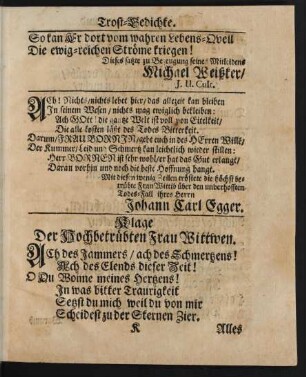 Trost-Gedichte.
So kan Er dort vom wahren Lebens-Qvell
Die ewig-reichen Ströme kriegen!
Dieses satzte zu Bezeugung seines Mitleidens
Michael Weißker/
J. U. Cult.
Ach! Nichts/ nichts lebet hier/ das allezeit kan bleiben
In seinem Wesen/ nichts mag ewiglich bekleiben:
Ach Gott! die gantze Welt ist voll von Eitelkeit/
Die alle kosten läßt des Todes Bitterkeit.
Darum/ FRAU BORNERIN gebt euch in des HErren Will/
Der Kummer/ Leid und Schmertz kan leichtlich wieder stillen:
Herr BORNER ist sehr wohl/ er hat das Gut erlangt/
Daran vorhin und noch die beste Hoffnung hangt.
Mit diesen wenig Zeilen tröstete die höchst betrübte
Frau Wittwe über den unverhofften
Todes-Fall ihres Herrn
Johann Carl Egger.
Klage
Der Hochbetrübten Frau Wittwen.
Ach des Jammers/ ach des Schmertzens!
Ach des Elends dieser Zeit!
O Du Wonne meines Hertzens!
In was bitter Traurigkeit
Setzst du mich weil du von mir
Scheidest zu der Sternen Zier.
K Alles